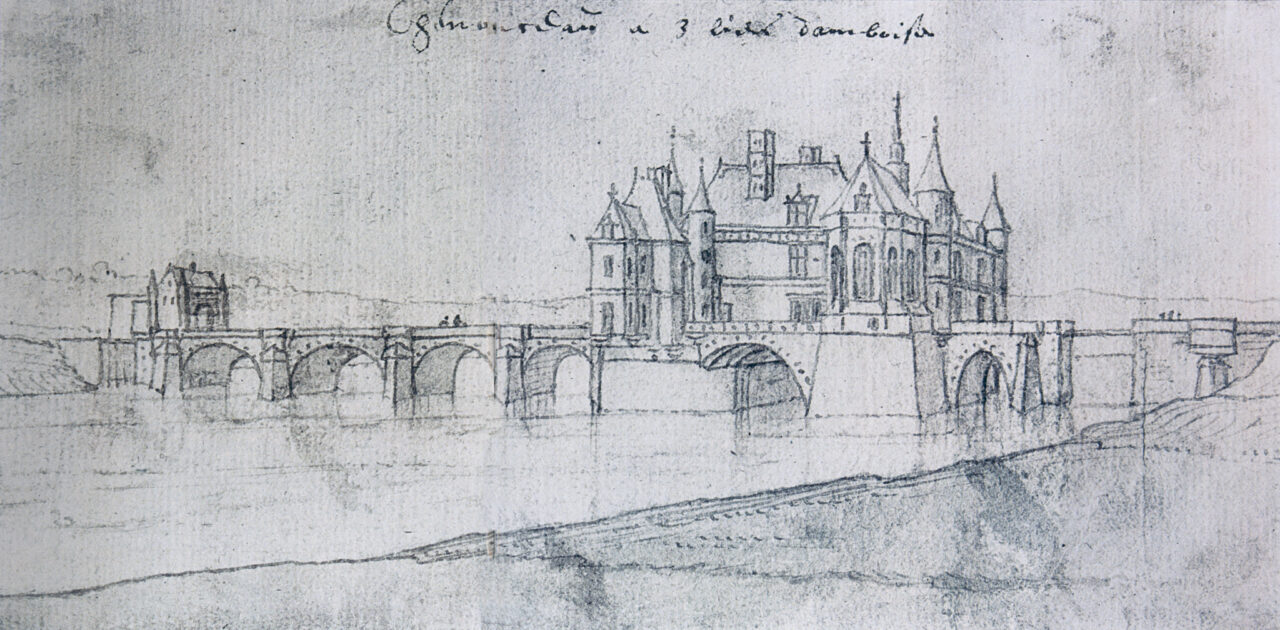 Chenonceau a 3 damboise